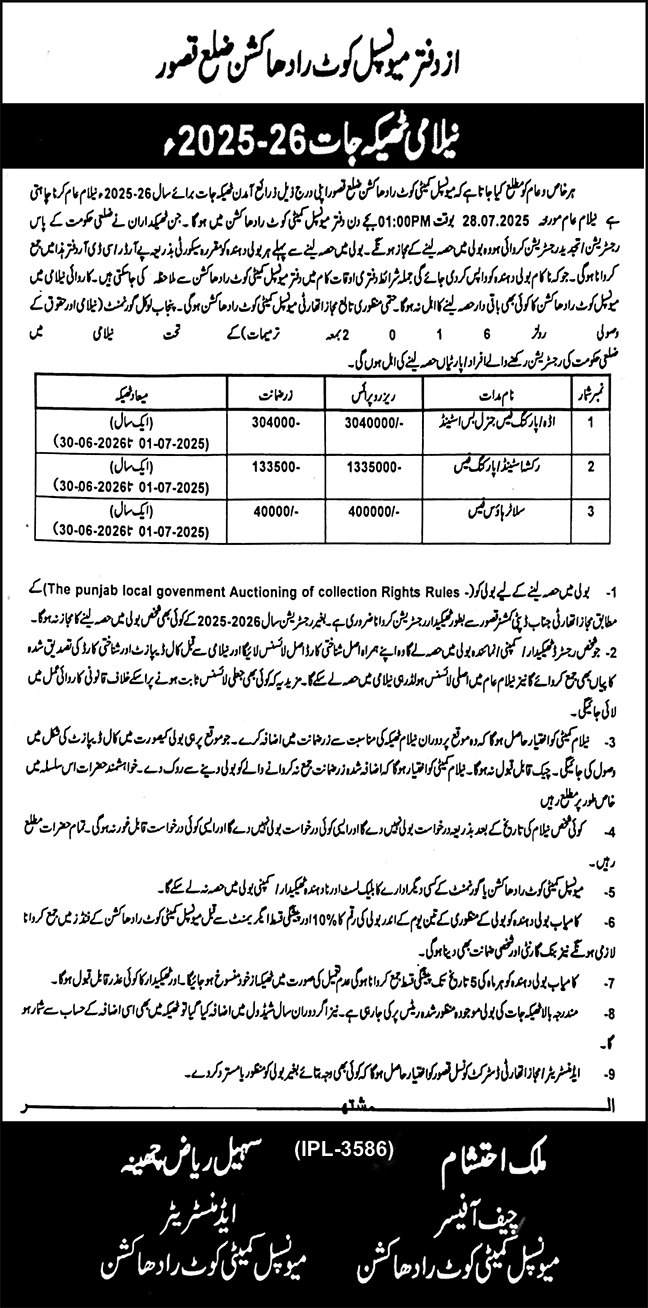 از دفتر میونسپل کوٹ رادھا کشن ضلع قصور
نیلامی ٹھیکہ جات 26-2025ء
ہر خاص و عام کو مطلع کیا جاتا ہے کہ میونسپل کمیٹی کوٹ رادھا کشن ضلع قصور اپنی درج ذیل ذرائع آمدن ٹھیکہ جات برائے سال 26-2025ء نیلام عام کرنا چاہتی
ہے نیلام عام مورخہ 28.07.2025 بوقت 01:00PM بجے دن دفتر میونسپل کمیٹی کوٹ رادھا کشن میں ہوگا۔ جن ٹھیکیداران نے ضلعی حکومت کے پاس
رجسٹریشن/تجدید رجسٹریشن کروائی ہو وہ بولی میں حصہ لینے کے مجاز ہونگے۔ بولی میں حصہ لینے سے پہلے ہر بولی دہندہ کو مقررہ سیکورٹی بذریعہ پے آرڈر/سی ڈی آر دفتر ہذا میں جمع
کروانا ہوگی۔ جو کہ ناکام بولی دہندہ کو واپس کر دی جائے گی جملہ شرائط دفتری اوقات کام میں دفتر میونسپل کمیٹی کوٹ رادھا کشن سے ملاحظہ کی جاسکتی ہیں۔ کاروائی نیلامی میں
میونسپل کوٹ رادھا کشن کا کوئی بھی باقی دار حصہ لینے کا اہل نہ ہوگا۔ حتمی منظوری تابع مجاز اتھارٹی میونسپل کمیٹی کوٹ رادھا کشن ہوگی۔ پنجاب لوکل گورنمنٹ (نیلامی اور حقوق کے
وصولی رولز 2016 بمعہ ترمیمات) کے تحت نیلامی میں
ضلعی حکومت کی رجسٹریشن رکھنے والے افراد/پارٹیاں حصہ لینے کی اہل ہوں گی۔
نمبر شمار نام مدات ریزرو پرائس زرضمانت میعاد ٹھیکہ
1 اڈہ/پارکنگ فیس جنرل بس اسٹینڈ 3040000/- 304000- (ایک سال)
(01-07-2025 تا 30-06-2026)
2 رکشا سٹینڈ/پارکنگ فیس 1335000- 133500- (ایک سال)
(01-07-2025 تا 30-06-2026)
3 سلاٹر ہاؤس فیس 400000/- 40000/- (ایک سال)
(01-07-2025 تا 30-06-2026)
1- بولی میں حصہ لینے کے لیے بولی کو (The punjab local govenment Auctioning of collection Rights Rules -) کے
مطابق مجاز اتھارٹی جناب ڈپٹی کمشنر قصور سے بطور ٹھیکیدار رجسٹریشن کروانا ضروری ہے۔ بغیر رجسٹریشن سال 2026-2025 کے کوئی بھی شخص بولی میں حصہ لینے کا مجاز نہ ہوگا۔
2- جو شخص رجسٹرڈ ٹھیکیدار/کمپنی/نمائندہ بولی میں حصہ لے گا وہ اپنے ہمراہ اصل شناختی کارڈ اصل لائسنس لائیگا اور نیلامی سے قبل کال ڈیپازٹ اور شناختی کارڈ کی تصدیق شدہ
کاپیاں بھی جمع کروائے گا نیز نیلام عام میں اصلی لائسنس ہولڈر ہی نیلامی میں حصہ لے سکے گا۔ مزید یہ کہ کوئی بھی جعلی لائسنس ثابت ہونے پر اسکے خلاف قانونی کاروائی عمل میں
لائی جائیگی۔
3- نیلام کمیٹی کو اختیار حاصل ہوگا کہ وہ موقع پر دوران نیلام ٹھیکہ کی مناسبت سے زرضمانت میں اضافہ کرے۔ جو موقع پر ہی بولی کیصورت میں کال ڈیپازٹ کی شکل میں
وصول کی جائیگی۔ چیک قابل قبول نہ ہوگا۔ نیلام کمیٹی کو اختیار ہوگا کہ اضافہ شدہ زرضمانت جمع نہ کروانے والے کو بولی دینے سے روک دے۔ خواہشمند حضرات اس سلسلہ میں
خاص طور پر مطلع رہیں
4- کوئی شخص نیلام کی تاریخ کے بعد بذریعہ درخواست بولی نہیں دے گا اور ایسی کوئی درخواست بولی نہیں دے گا اور ایسی کوئی درخواست قابل غور نہ ہوگی۔ تمام حضرات مطلع
رہیں۔
5- میونسپل کمیٹی کوٹ رادھا کشن یا گورنمنٹ کے کسی دیگر ادارے کا بلیک لسٹ اور نادہندہ ٹھیکیدار/کمپنی بولی میں حصہ نہ لے سکے گا۔
6- کامیاب بولی دہندہ کو بولی کے منظوری کے تین یوم کے اندر بولی کی رقم کا 10% اور پیشگی قسط ایگریمنٹ سے قبل میونسپل کمیٹی کوٹ رادھا کشن کے فنڈز میں جمع کروانا
لازمی ہونگے نیز بنک گارنٹی اور شخصی ضمانت بھی دینا ہوگی۔
7- کامیاب بولی دہندہ کو ہر ماہ کی 5 تاریخ تک پیشگی قسط جمع کروانا ہوگی عدم تعمیل کی صورت میں ٹھیکہ از خود منسوخ ہو جائیگا۔ اور ٹھیکیدار کا کوئی عذر قابل قبول نہ ہوگا۔
8- مندرجہ بالا ٹھیکہ جات کی بولی موجودہ منظور شدہ ریٹس پر کی جارہی ہے۔ نیز اگر دوران سال شیڈول میں اضافہ کیا گیا تو ٹھیکہ میں بھی اسی اضافہ کے حساب سے شمار ہو
گا۔
9- ایڈمنسٹریٹر/مجاز اتھارٹی ڈسٹرکٹ کونسل قصور کو اختیار حاصل ہوگا کہ کوئی بھی وجہ بتائے بغیر بولی کو منظور یا مسترد کر دے۔
المشتہر
ملک احتشام (IPL-3586) سہیل ریاض چھینہ
چیف آفیسر ایڈمنسٹریٹر
میونسپل کمیٹی کوٹ رادھا کشن میونسپل کمیٹی کوٹ رادھا کشن